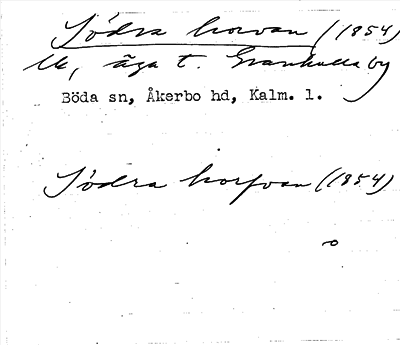 Södra horvan (1854)
lk, äga t. Grankulla by
Böda sn, Åkerbo hd, Kalm. l.
Södra horfvan (1854)